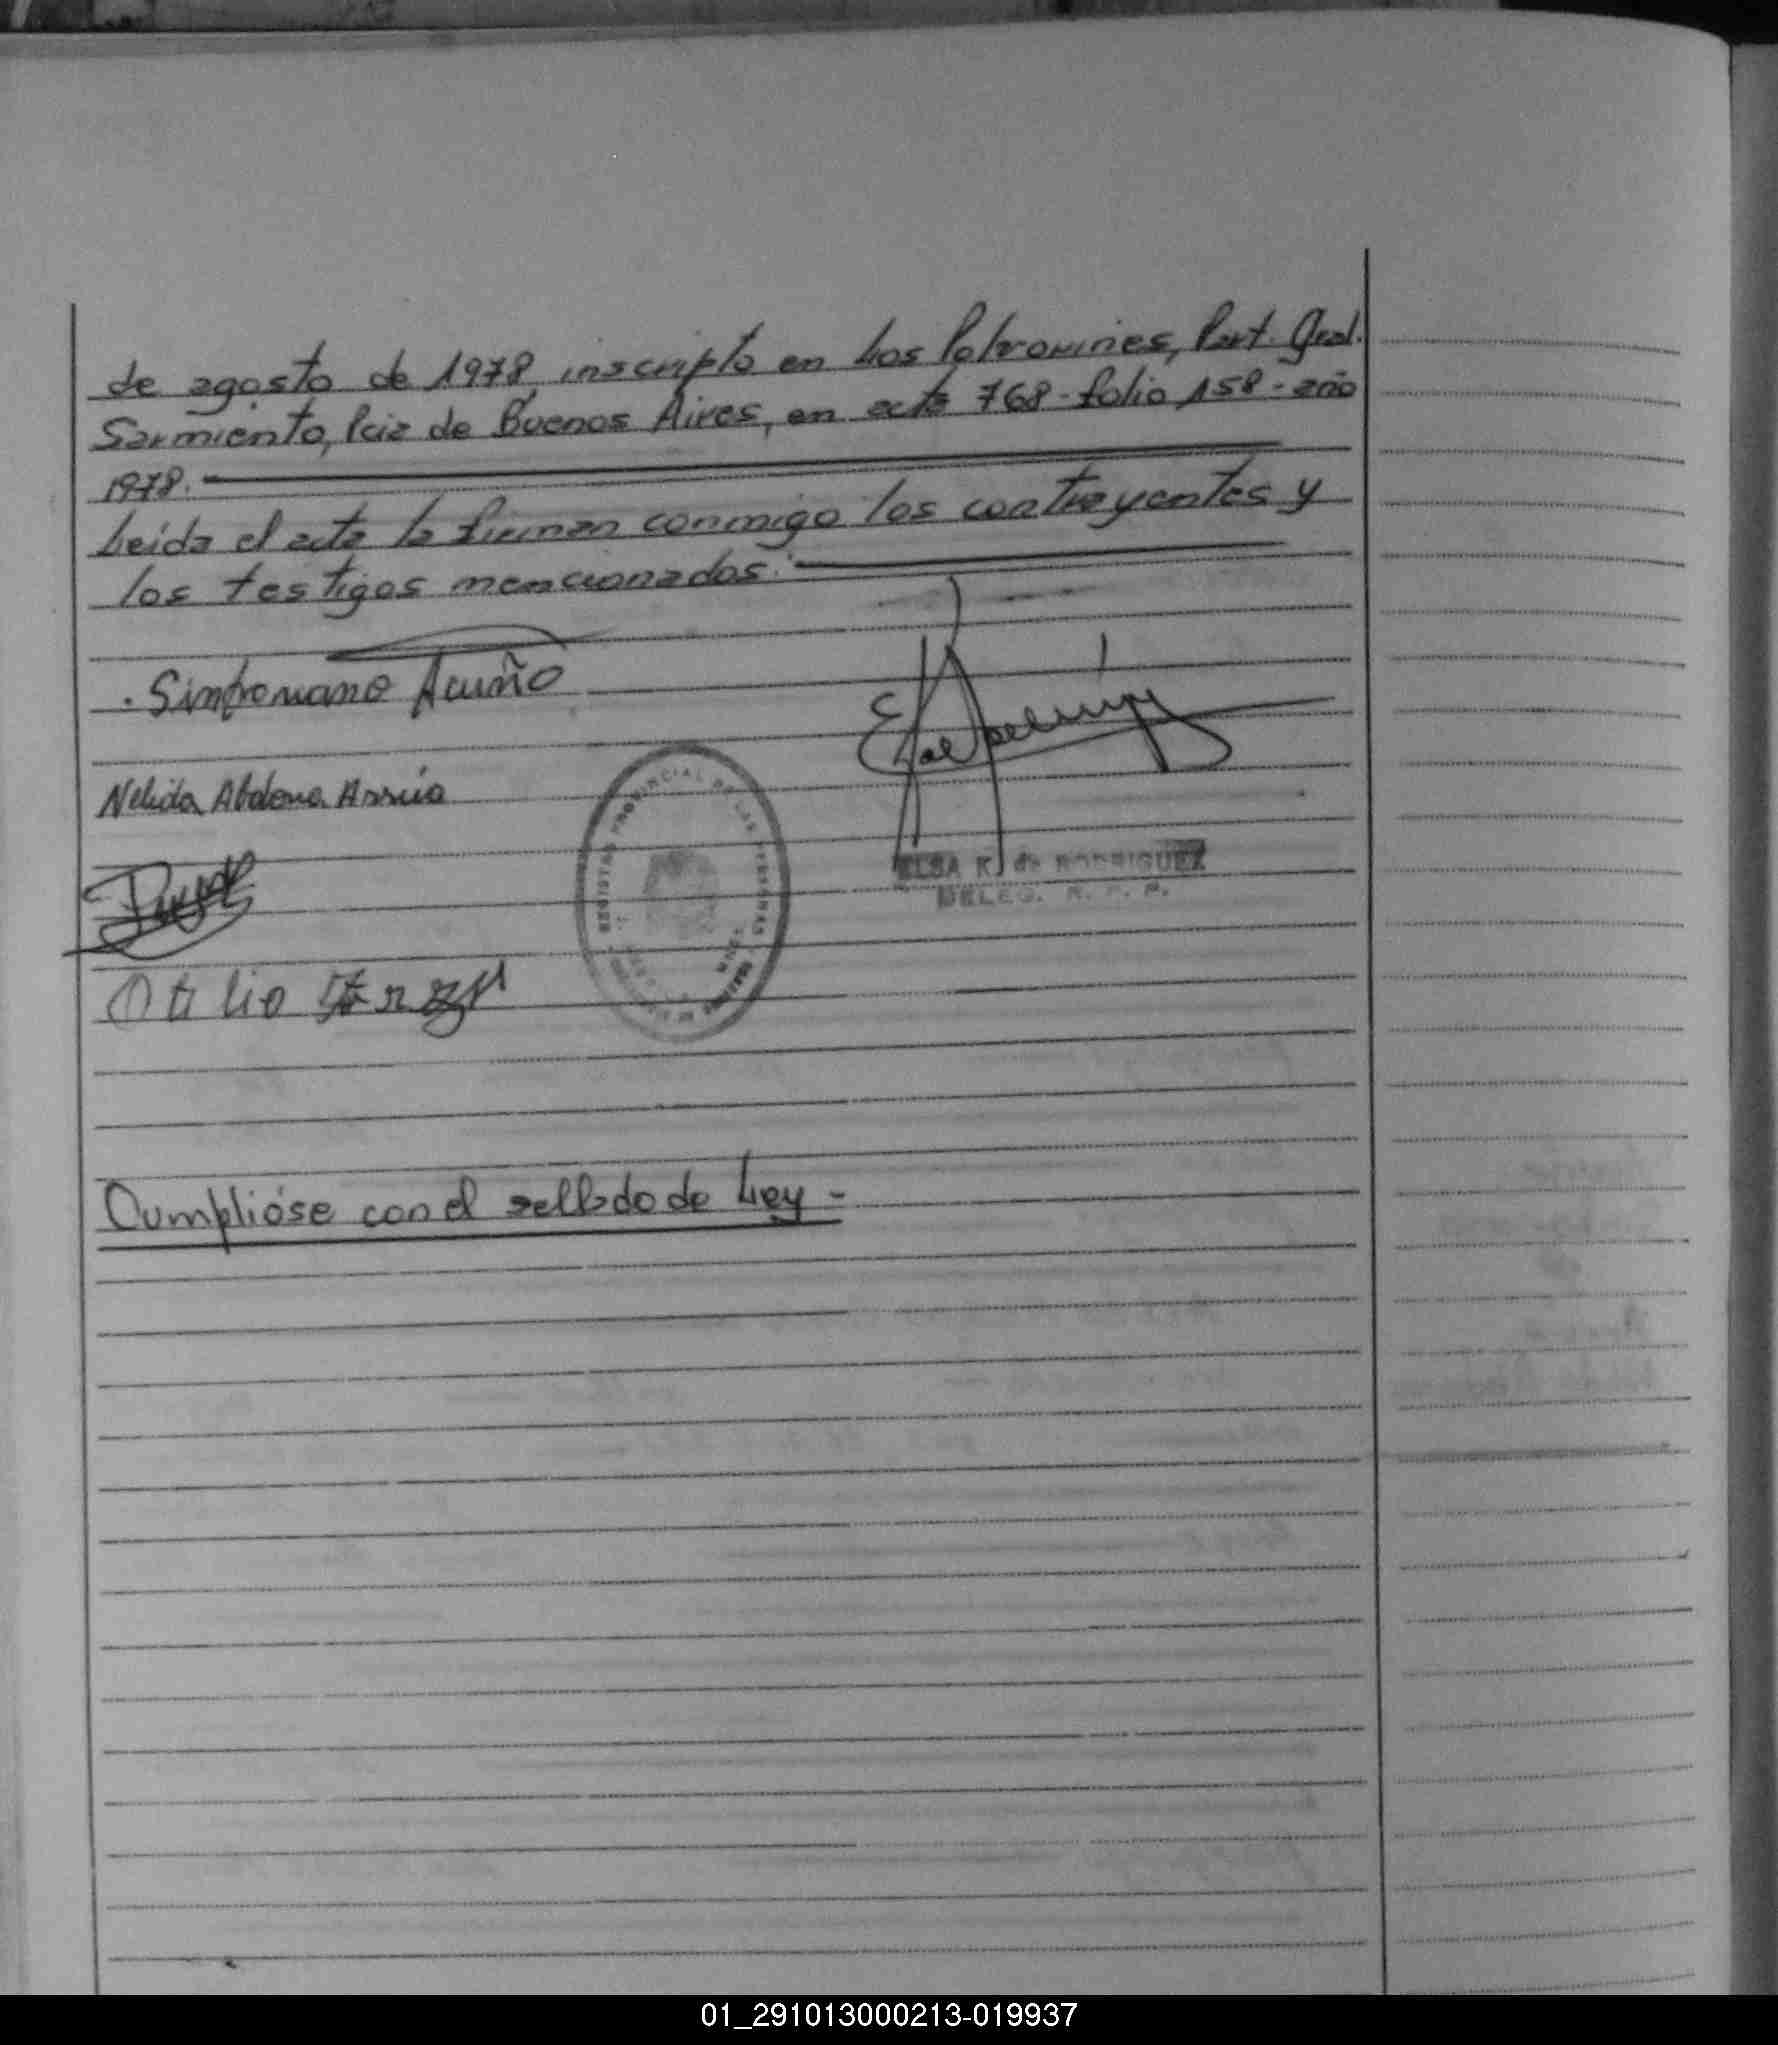 de agosto de 1978 inscripto en Los Polvorines, Part. Gral.
Sarmiento, Pcia de Buenos Aires, en acta 768 - folio 158 - año
1978.
Leida el acta la firman conmigo los contrayentes y
los testigos mencionados.
Sinforiano Acuño
Nelida Abdona Arrúa
REGISTRO PROVINCIAL DE LAS PERSONAS
ELSA K. de RODRIGUEZ
DELEG. R. P. P.
Otilio
Cumplióse con el sellado de Ley -
01_291013000213-019937